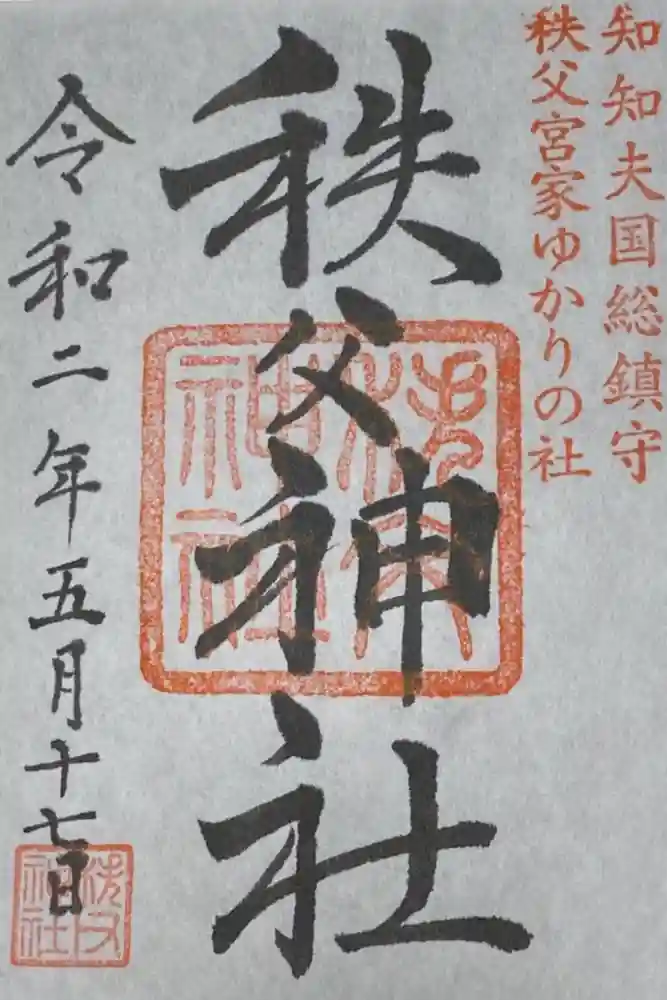 知知夫国総鎮守
秩父宮家ゆかりの社
秩父神社
秩父神社
令和二年五月十七日
秩父神社